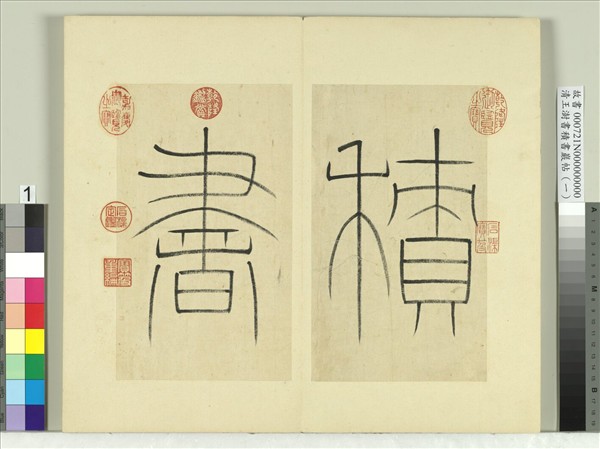 積
書
故書 000721N000000000
清王澍書積書巖帖(一)
1
A
M
B